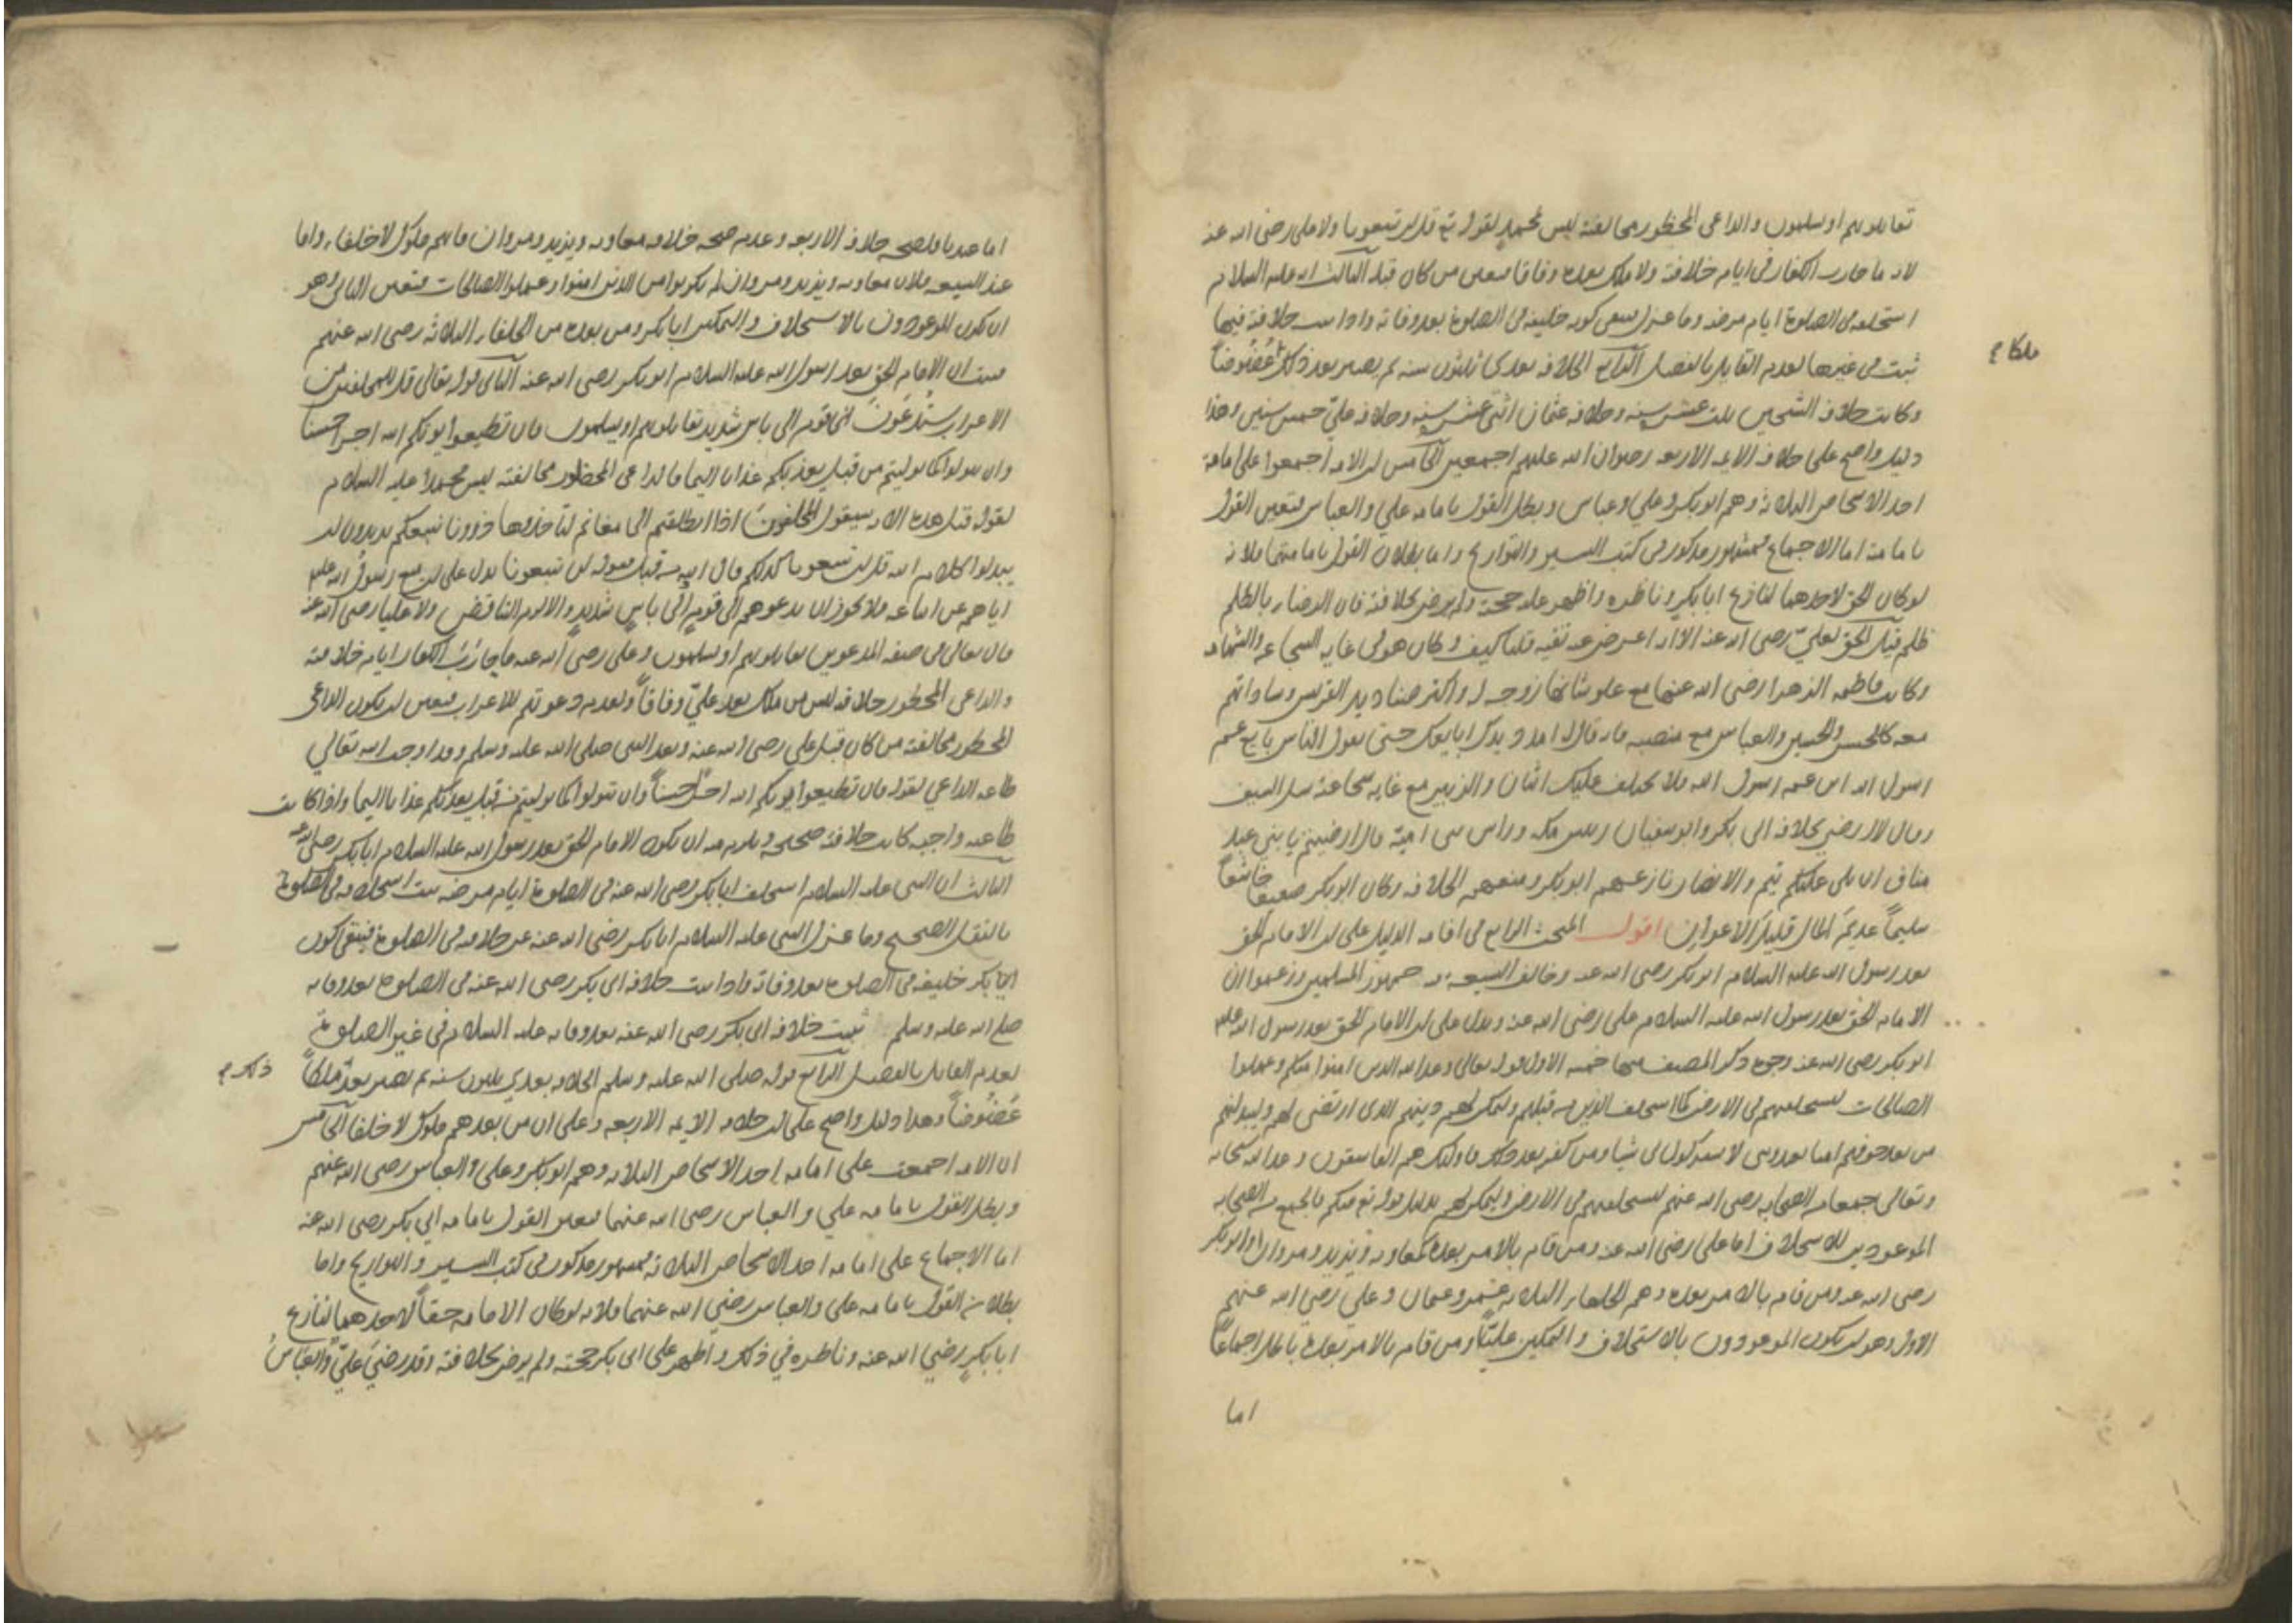 تقاتلونهم او يسلمون والداعي المحظور مخالفته ليس محمد لقوله تع قل لن تتبعونا ولا علي رضي الله عنه
لانه ما حارب الكفار في ايام خلافته ولا ملك بعده وفاقا فتعين من كان قبله الثالث انه عليه السلام
استخلفه في الصلوة ايام مرضه وما عزله فبقي كونه خليفة في الصلوة بعد وفاته واذا ثبت خلافته فيها
ثبت في غيرها لعدم القايل بالفصل الرابع الخلافة بعدي ثلثون سنة ثم يصير بعد ذلك عضوضاً
ملكا
وكانت خلافة الشيخين ثلث عشر سنة وخلافة عثمان اثني عشر سنة وخلافة علي خمس سنين وهذا
دليل واضح على خلافة الايمة الاربعة رضوان الله عليهم اجمعين الخامس ان الامة اجمعوا على امامة
احد الاشخاص الثلاثة وهم ابو بكر وعلي وعباس وبطل القول بامامة علي والعباس فتعين القول
بامامته اما الاجماع فمشهور مذكور في كتب السير والتواريخ واما بطلان القول بامامتهما فلانه
لو كان الحق لاحدهما لنازع ابا بكر وناظره واظهر عليه حجته ولم يرض بخلافته فان الرضاء بالظلم
ظلم قيل الحق لعلي رضي الله عنه الا انه اعرض عنه تقية قلنا كيف وكان هو في غاية الشجاعة والشهامة
وكانت فاطمة الزهرا رضي الله عنها مع علو شانها زوجة له واكثر صناديد القريش وساداتهم
معه كالحسن والحسين والعباس مع منصبه فانه قال امدد يدك ابايعك حتى يقول الناس بايع عم
رسول الله ابن عم رسول الله فلا يختلف عليك اثنان والزبير مع غاية شجاعته سل السيف
وقال لا ارضى بخلافة ابي بكر وابو سفيان رئيس مكة وراس بني امية قال ارضيتم يا بني عبد
مناف ان يلي عليكم تيم والانصار نازعهم ابو بكر ومنعهم الخلافة وكان ابو بكر ضعيفا خاشعاً
سليماً عديم المال قليل الاعوان اقول المبحث الرابع في اقامة الدليل على ان الامام الحق
بعد رسول الله عليه السلام ابو بكر رضي الله عنه وخالف الشيعة جمهور المسلمين وزعموا ان
الامام الحق بعد رسول الله عليه السلام علي رضي الله عنه ويدل على ان الامام الحق بعد رسول الله عليه
ابو بكر رضي الله عنه وجوه ذكر المصنف منها خمسة الاول قوله تعالى وعد الله الذين امنوا منكم وعملوا
الصالحات ليستخلفنهم في الارض كما استخلف الذين من قبلهم وليمكنن لهم دينهم الذي ارتضى لهم وليبدلنهم
من بعد خوفهم امنا يعبدونني لا يشركون بي شيا ومن كفر بعد ذلك فاولئك هم الفاسقون وعد الله سبحانه
وتعالى جمعا من الصحابة رضي الله عنهم ليستخلفنهم في الارض وليمكنن لهم بدليل قوله تع منكم فالجمع من الصحابة
الموعودين للاستخلاف اما علي رضي الله عنه ومن قام بالامر بعده كمعاوية ويزيد ومروان او ابو بكر
رضي الله عنه ومن قام بالامر بعده وهم الخلفاء الثلاثة عمر وعثمان وعلي رضي الله عنهم
الاول وهو ان يكون الموعودون بالاستخلاف والتمكين علياً ومن قام بالامر بعده باطل اجماعاً
اما
اما عندنا فلصحة خلافة الاربعة وعدم صحة خلافة معاوية ويزيد ومروان فانهم ملوك لا خلفاء واما
عند الشيعة فلان معاوية ويزيد ومروان لم يكونوا من الذين امنوا وعملوا الصالحات فتعين الثاني وهو
ان يكون الموعودون بالاستخلاف والتمكين ابا بكر ومن بعده من الخلفاء الثلاثة رضي الله عنهم
فثبت ان الامام الحق بعد رسول الله عليه السلام ابو بكر رضي الله عنه الثاني قوله تعالى قل للمخلفين من
الاعراب ستدعون الى قوم الى باس شديد تقاتلونهم او يسلمون فان تطيعوا يوتكم الله اجرا حسنا
وان تتولوا كما توليتم من قبل يعذبكم عذابا اليما فالداعي المحظور مخالفته ليس محمداً عليه السلام
لقوله قبل هذه الاية سيقول المخلفون اذا انطلقتم الى مغانم لتاخذوها ذرونا نتبعكم يريدون ان
يبدلوا كلام الله قل لن تتبعونا كذلكم قال الله من قبل فقوله لن تتبعونا يدل على ان منع رسول الله عليه
اياهم عن اتباعه فلا يجوز ان يدعوهم الى قوم الى باس شديد والا لزم التناقض ولا عليا رضي الله عنه
فان تعالى في صفة المدعوين تقاتلونهم او يسلمون وعلي رضي الله عنه ما حارب الكفار ايام خلافته
والداعي المحظور خلافه ليس من ملك بعد علي وفاقاً ولعدم دعوتهم للاعراب فتعين ان يكون الداعي
المحظور مخالفته من كان قبل علي رضي الله عنه وبعد النبي صلى الله عليه وسلم وقد اوجب الله تعالى
طاعة الداعي لقوله فان تطيعوا يوتكم الله اجراً حسناً وان تتولوا كما توليتم من قبل يعذبكم عذابا اليما واذا كانت
طاعته واجبة كانت خلافته صحيحة ويلزم منه ان يكون الامام الحق بعد رسول الله عليه السلام ابا بكر رضي الله عنه
الثالث ان النبي عليه السلام استخلف ابا بكر رضي الله عنه في الصلوة ايام مرضه ثبت استخلافه في الصلوة
بالنقل الصحيح وما عزل النبي عليه السلام ابا بكر رضي الله عنه عن خلافته في الصلوة فيبقى كون
ابي بكر خليفة في الصلوة بعد وفاته واذا ثبت خلافة ابي بكر رضي الله عنه في الصلوة بعد وفاته
صلى الله عليه وسلم ثبت خلافة ابي بكر رضي الله عنه بعد وفاته عليه السلام في غير الصلوة
لعدم القايل بالفصل الرابع قوله صلى الله عليه وسلم الخلافة بعدي ثلثون سنة ثم يصير بعد ملكاً
ذلك
عضوضاً وهذا دليل واضح على ان خلافة الايمة الاربعة وعلى ان من بعدهم ملوك لا خلفا الخامس
ان الامة اجمعت على امامة احد الاشخاص الثلاثة وهم ابو بكر وعلي والعباس رضي الله عنهم
وبطل القول بامامة علي والعباس رضي الله عنهما فتعين القول بامامة ابي بكر رضي الله عنه
اما الاجماع على امامة احد الاشخاص الثلاثة فمشهور مذكور في كتب السير والتواريخ واما
بطلان القول بامامة علي والعباس رضي الله عنهما فلانه لو كان الامامة حقاً لاحدهما لنازع
ابا بكر رضي الله عنه وناظره في ذلك واظهر على ابي بكر حجته ولم يرض بخلافته وقد رضي علي والعباس